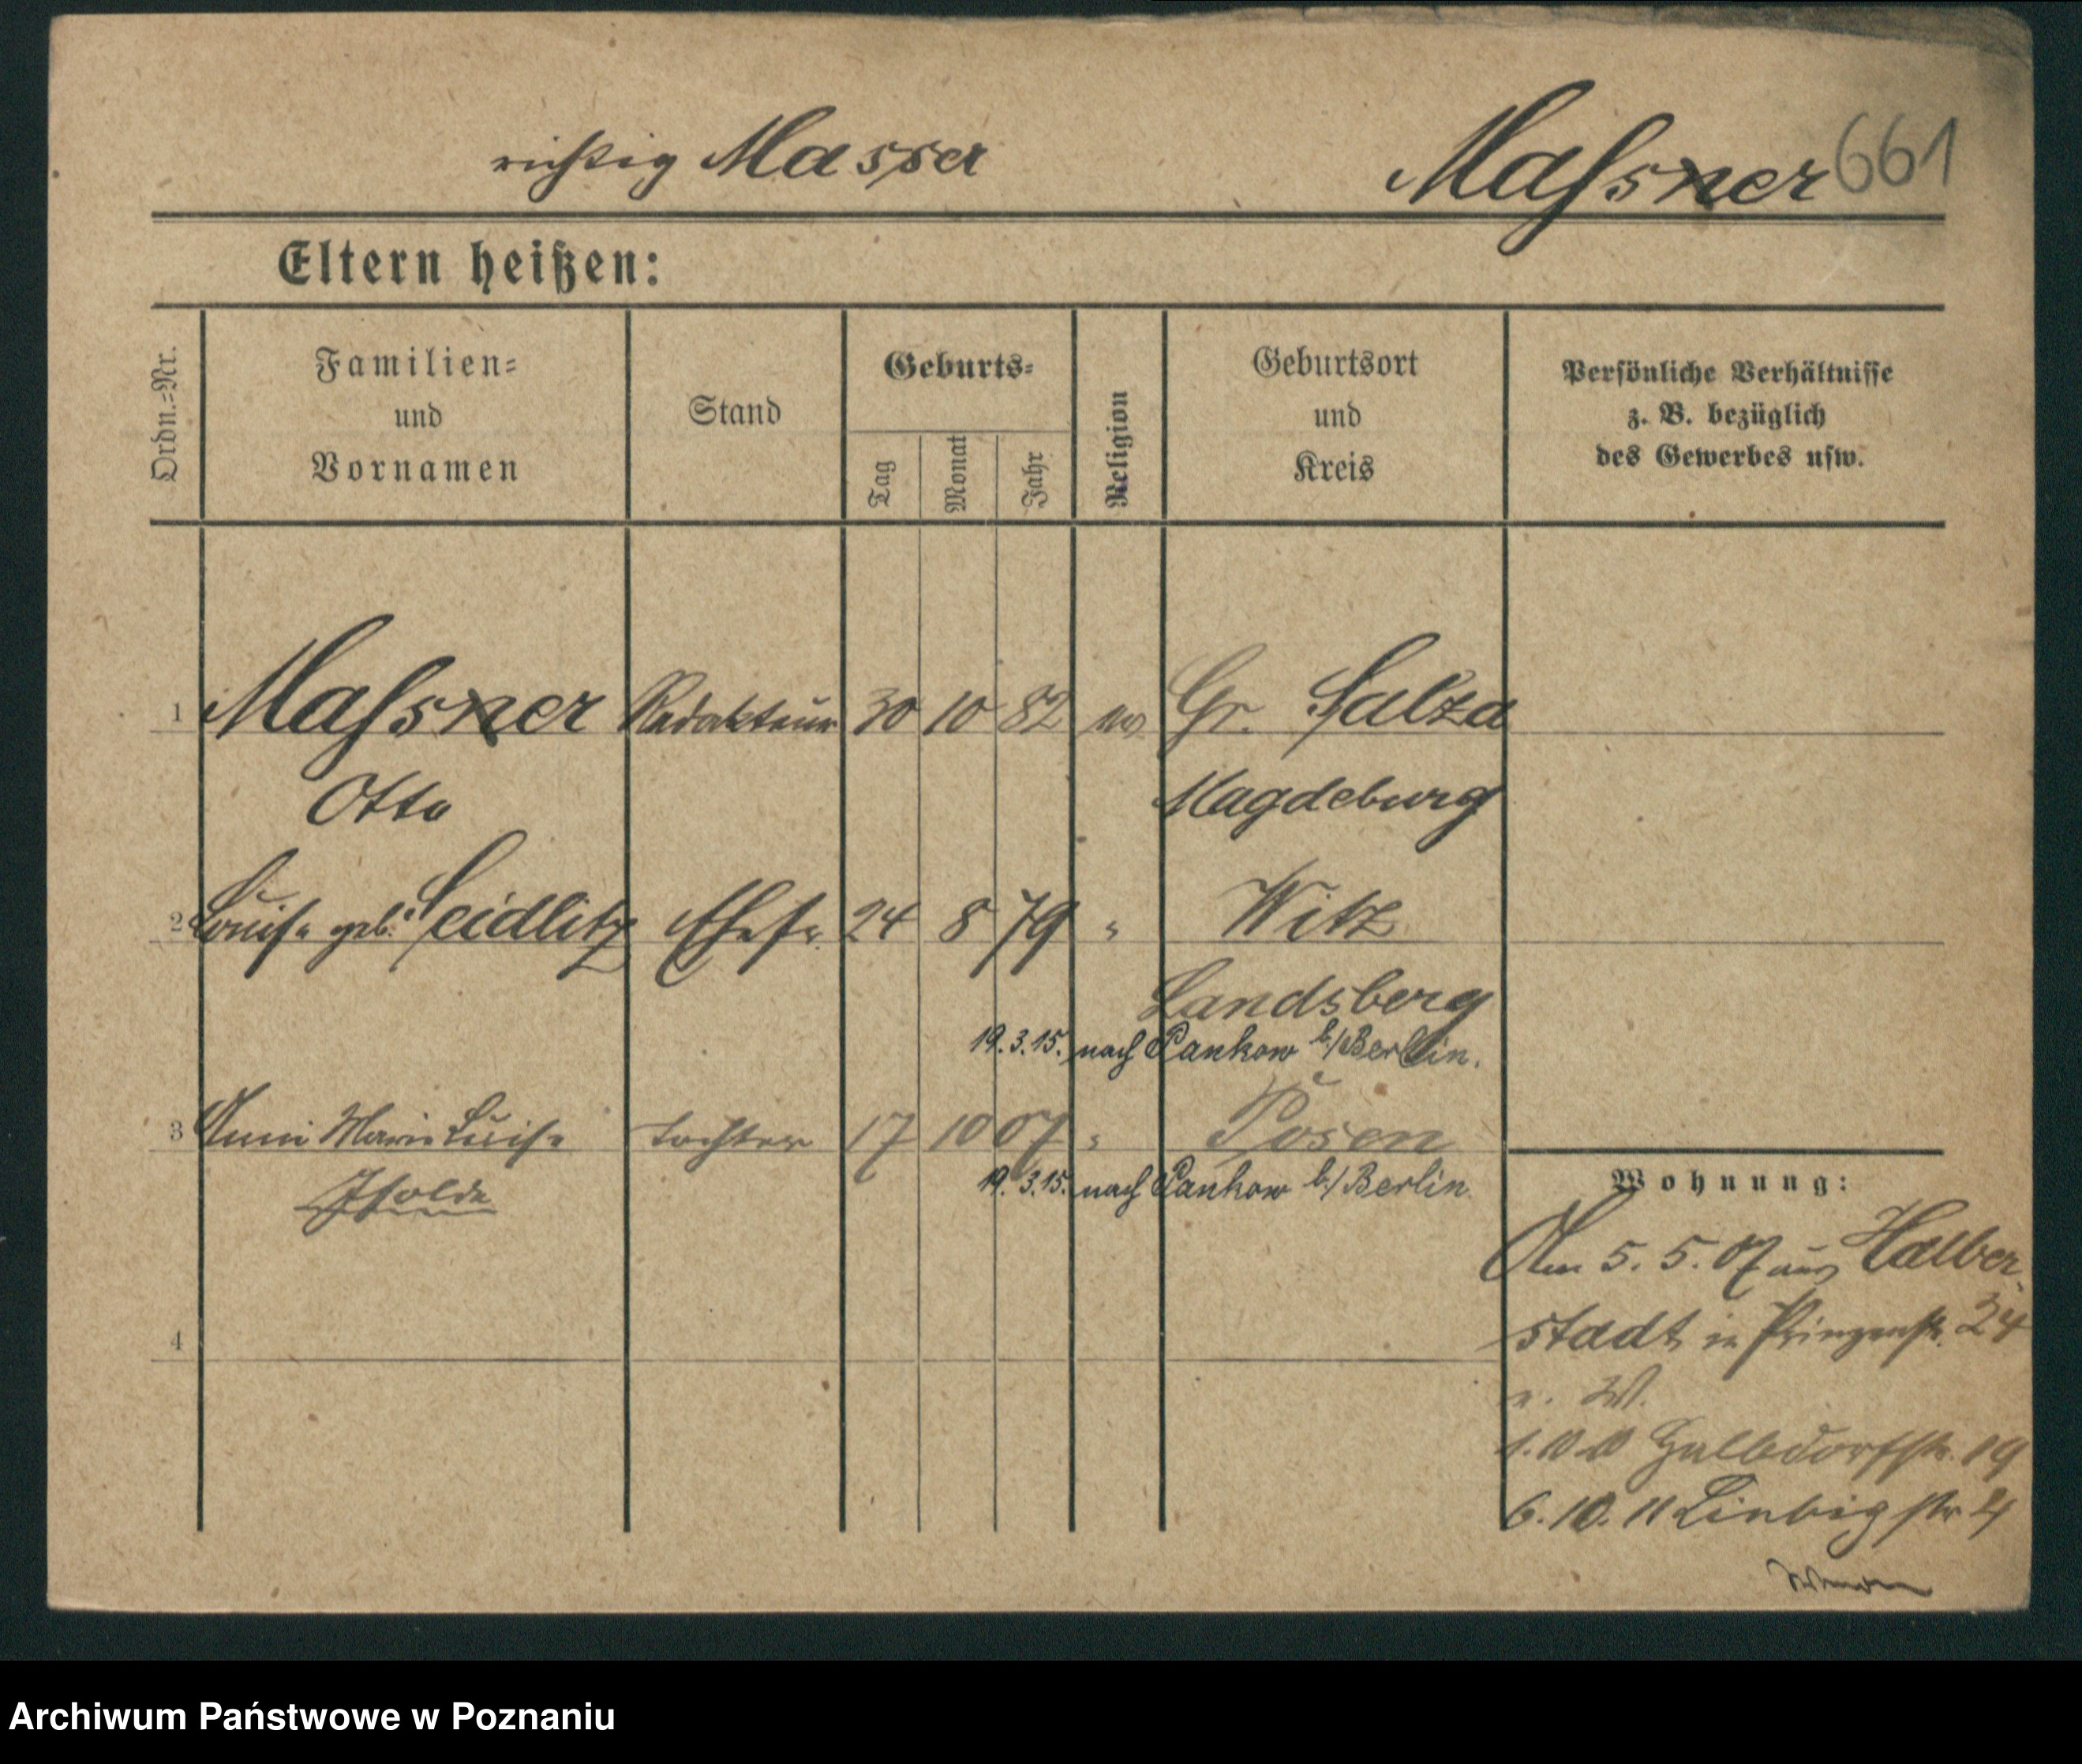 richtig Masser
Maſsner 661
Eltern heißen:
Ordn.=Nr.
Familien=
und
Vornamen
Stand
Geburts=
Tag
Monat
Jahr
Religion
Geburtsort
und
Kreis
Persönliche Verhältnisse
z. B. bezüglich
des Gewerbes usw.
1 Maſsner Redakteur 30 10 82 ev Gr. Salza
Otto Magdeburg
2 Louise geb. Seidlitz Ehefr. 24 8 79 " Witz
Landsberg
19.3.15. nach Pankow b/Berlin.
3 Anni Marie Luise Tochter 17 10 07 " Posen
Isolde 19.3.15. nach Pankow b/Berlin
Wohnung:
Am 5.5.07 aus Halber-
stadt in Prinzenstr. 34
1.10.10 Halbdorfstr. 19
4
6.10.11 Liebigstr 4
Wenden